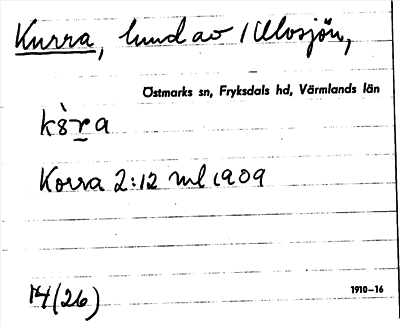 Kurra, lund av / Ulvsjön,
Östmarks sn, Fryksdals hd, Värmlands län
Korra 2:12 ml 1909
14(26)
1910–16